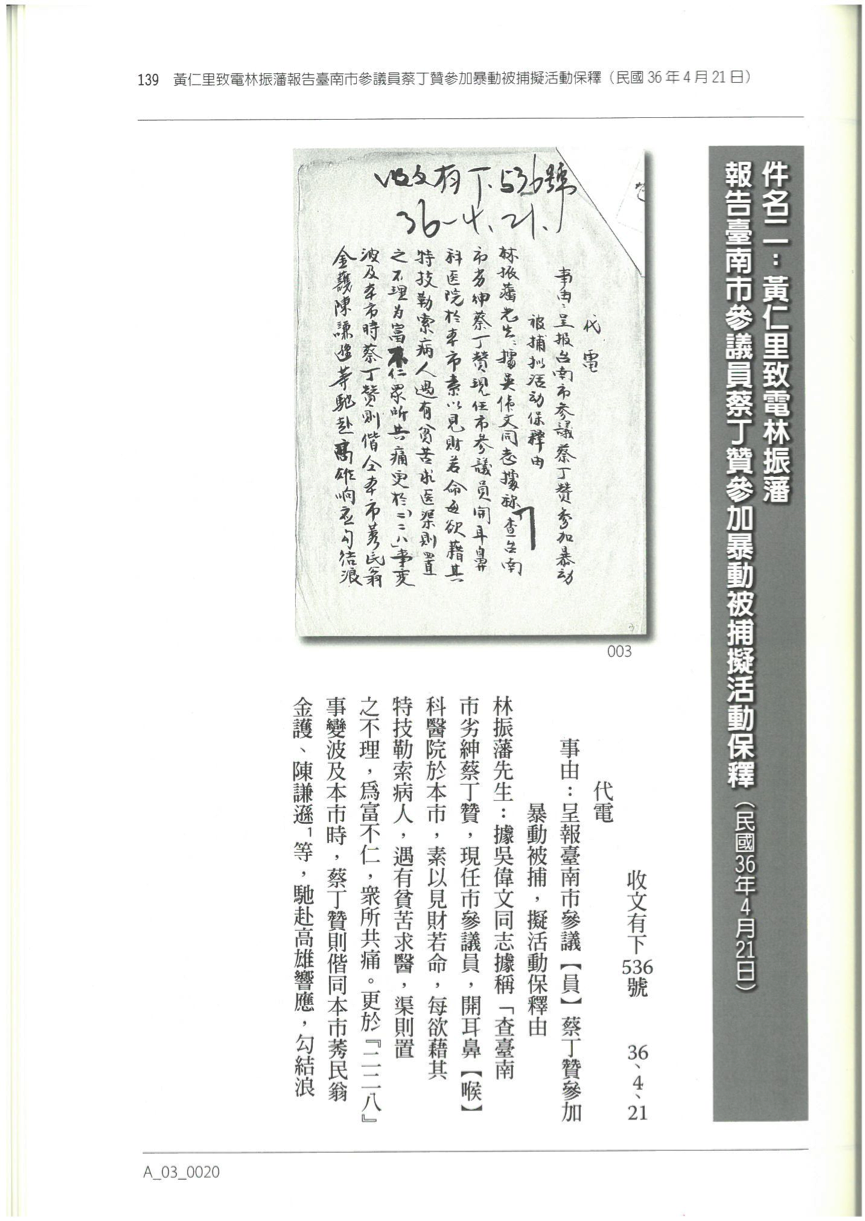 139 黃仁里致電林振藩報告臺南市參議員蔡丁贊參加暴動被捕擬活動保釋（民國 36 年 4 月 21 日）
件名二：黃仁里致電林振藩
報告臺南市參議員蔡丁贊參加暴動被捕擬活動保釋（民國36年4月21日）
收文有丁.536號
36-4.21.
代電
事由：呈报台南市參議蔡丁贊參加暴动
被捕拟活动保釋由
林振藩先生：據吳偉文同志據稱「查台南
市劣紳蔡丁贊現任市參議員開耳鼻
科医院於本市素以見財若命每欲藉其
特技勒索病人遇有貧苦求医渠則置
之不理为富不仁眾所共痛更於二二八事变
波及本市時蔡丁贊則偕仝本市莠民翁
金護陳謙遜等馳赴高雄响应勾结浪
003
收文有下536號 36、4、21
代電
事由：呈報臺南市參議【員】蔡丁贊參加
暴動被捕，擬活動保釋由
林振藩先生：據吳偉文同志據稱「查臺南
市劣紳蔡丁贊，現任市參議員，開耳鼻【喉】
科醫院於本市，素以見財若命，每欲藉其
特技勒索病人，遇有貧苦求醫，渠則置
之不理，爲富不仁，衆所共痛。更於『二二八』
事變波及本市時，蔡丁贊則偕同本市莠民翁
金護、陳謙遜1等，馳赴高雄響應，勾結浪
A_03_0020